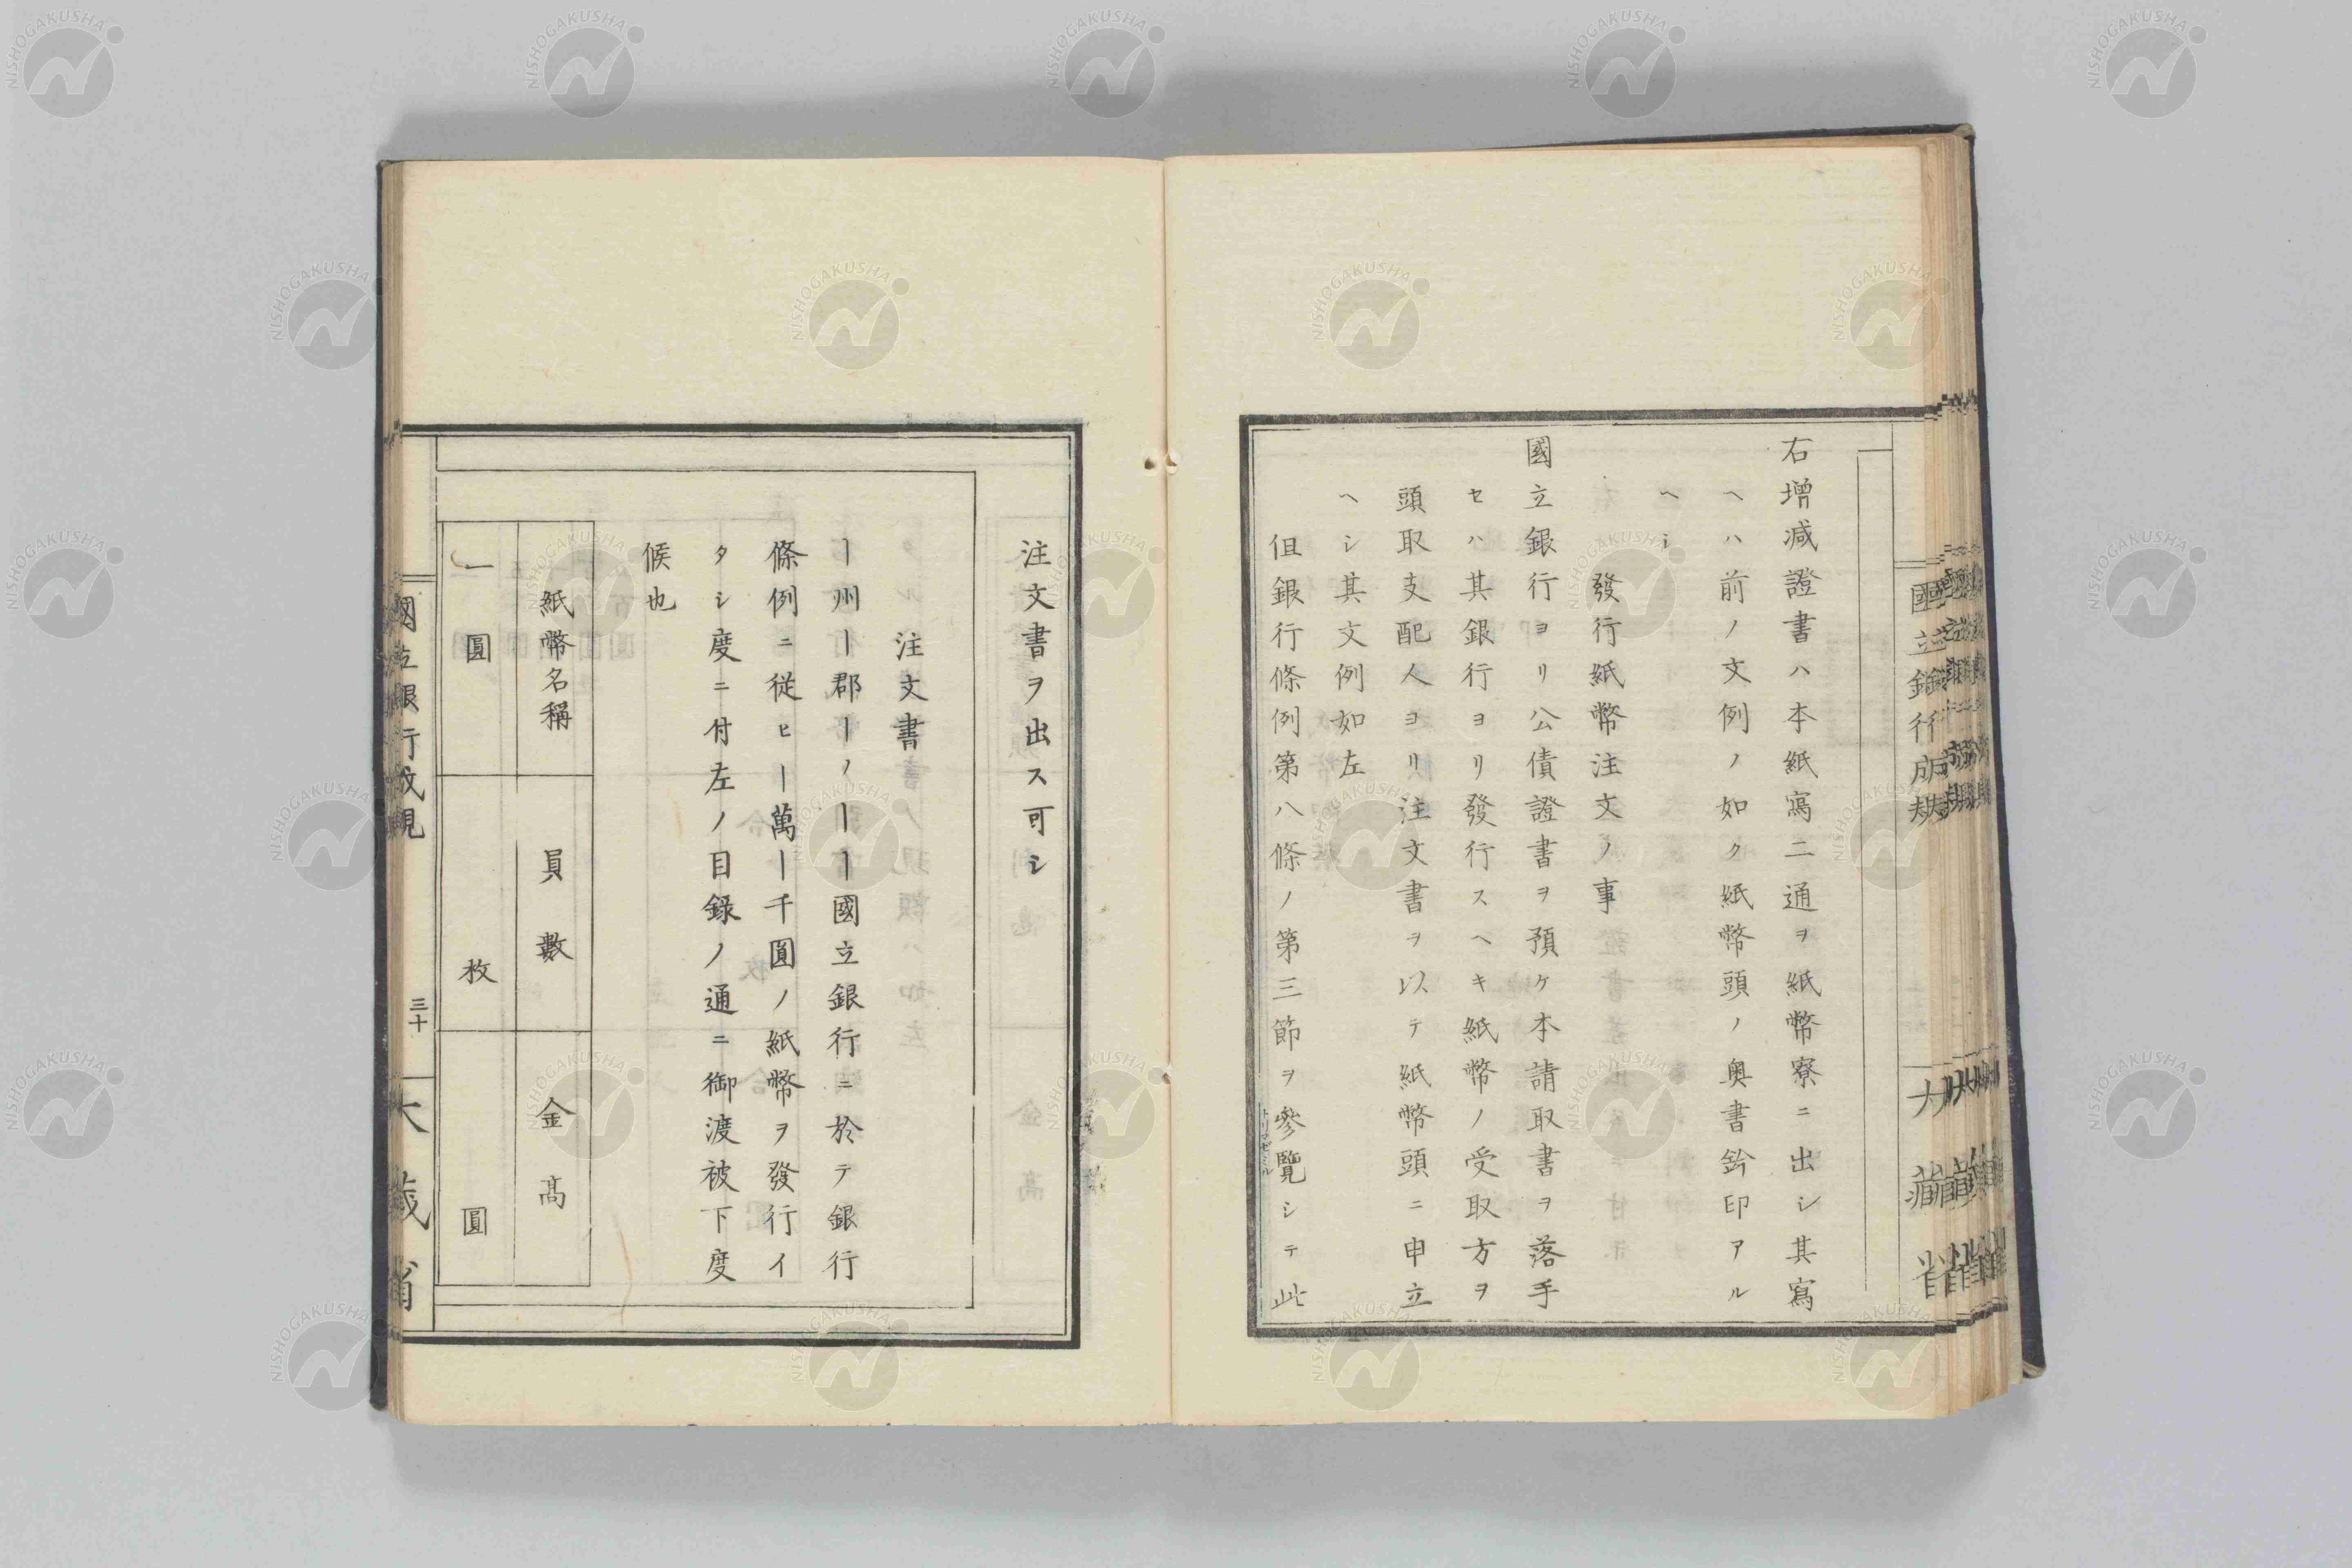 右增減證書ハ本紙寫二通ヲ紙幣寮ニ出シ其寫
ヘハ前ノ文例ノ如ク紙幣頭ノ奥書鈐印アル
ヘシ
發行紙幣注文ノ事
國立銀行ヨリ公債證書ヲ預ケ本請取書ヲ落手
セハ其銀行ヨリ發行スヘキ紙幣ノ受取方ヲ
頭取支配人ヨリ注文書ヲ以テ紙幣頭ニ申立
ヘシ其文例如左
但銀行條例第八條ノ第三節ヲ參覽シテ此
注文書ヲ出ス可シ
注文書
ー州ー郡ーノーー國立銀行ニ於テ銀行
條例ニ従ヒー萬ー千圓ノ紙幣ヲ發行イ
タシ度ニ付左ノ目録ノ通ニ御渡被下度
候也
紙幣名稱 員數 金高
一圓 枚 圓
三十
大藏省
NISHOGAKUSHA